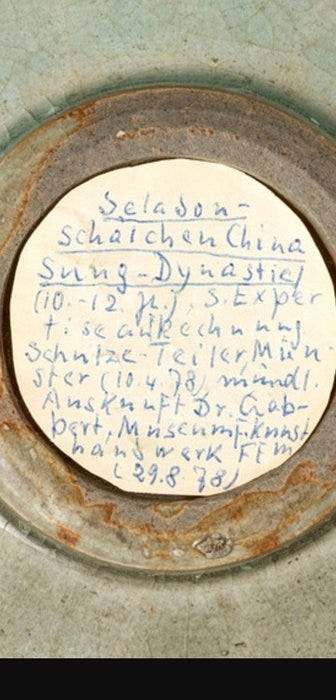 Seladon-
Schälchen China
Sung-Dynastie
(10.-12. Jh.), s. Exper
tise auf Rechnung
Schulze-Teiler, Mün-
ster (10.4.78), mündl.
Auskunft Dr. Gab-
bert, Museum f. Kunst
handwerk FFM
(29.8.78)